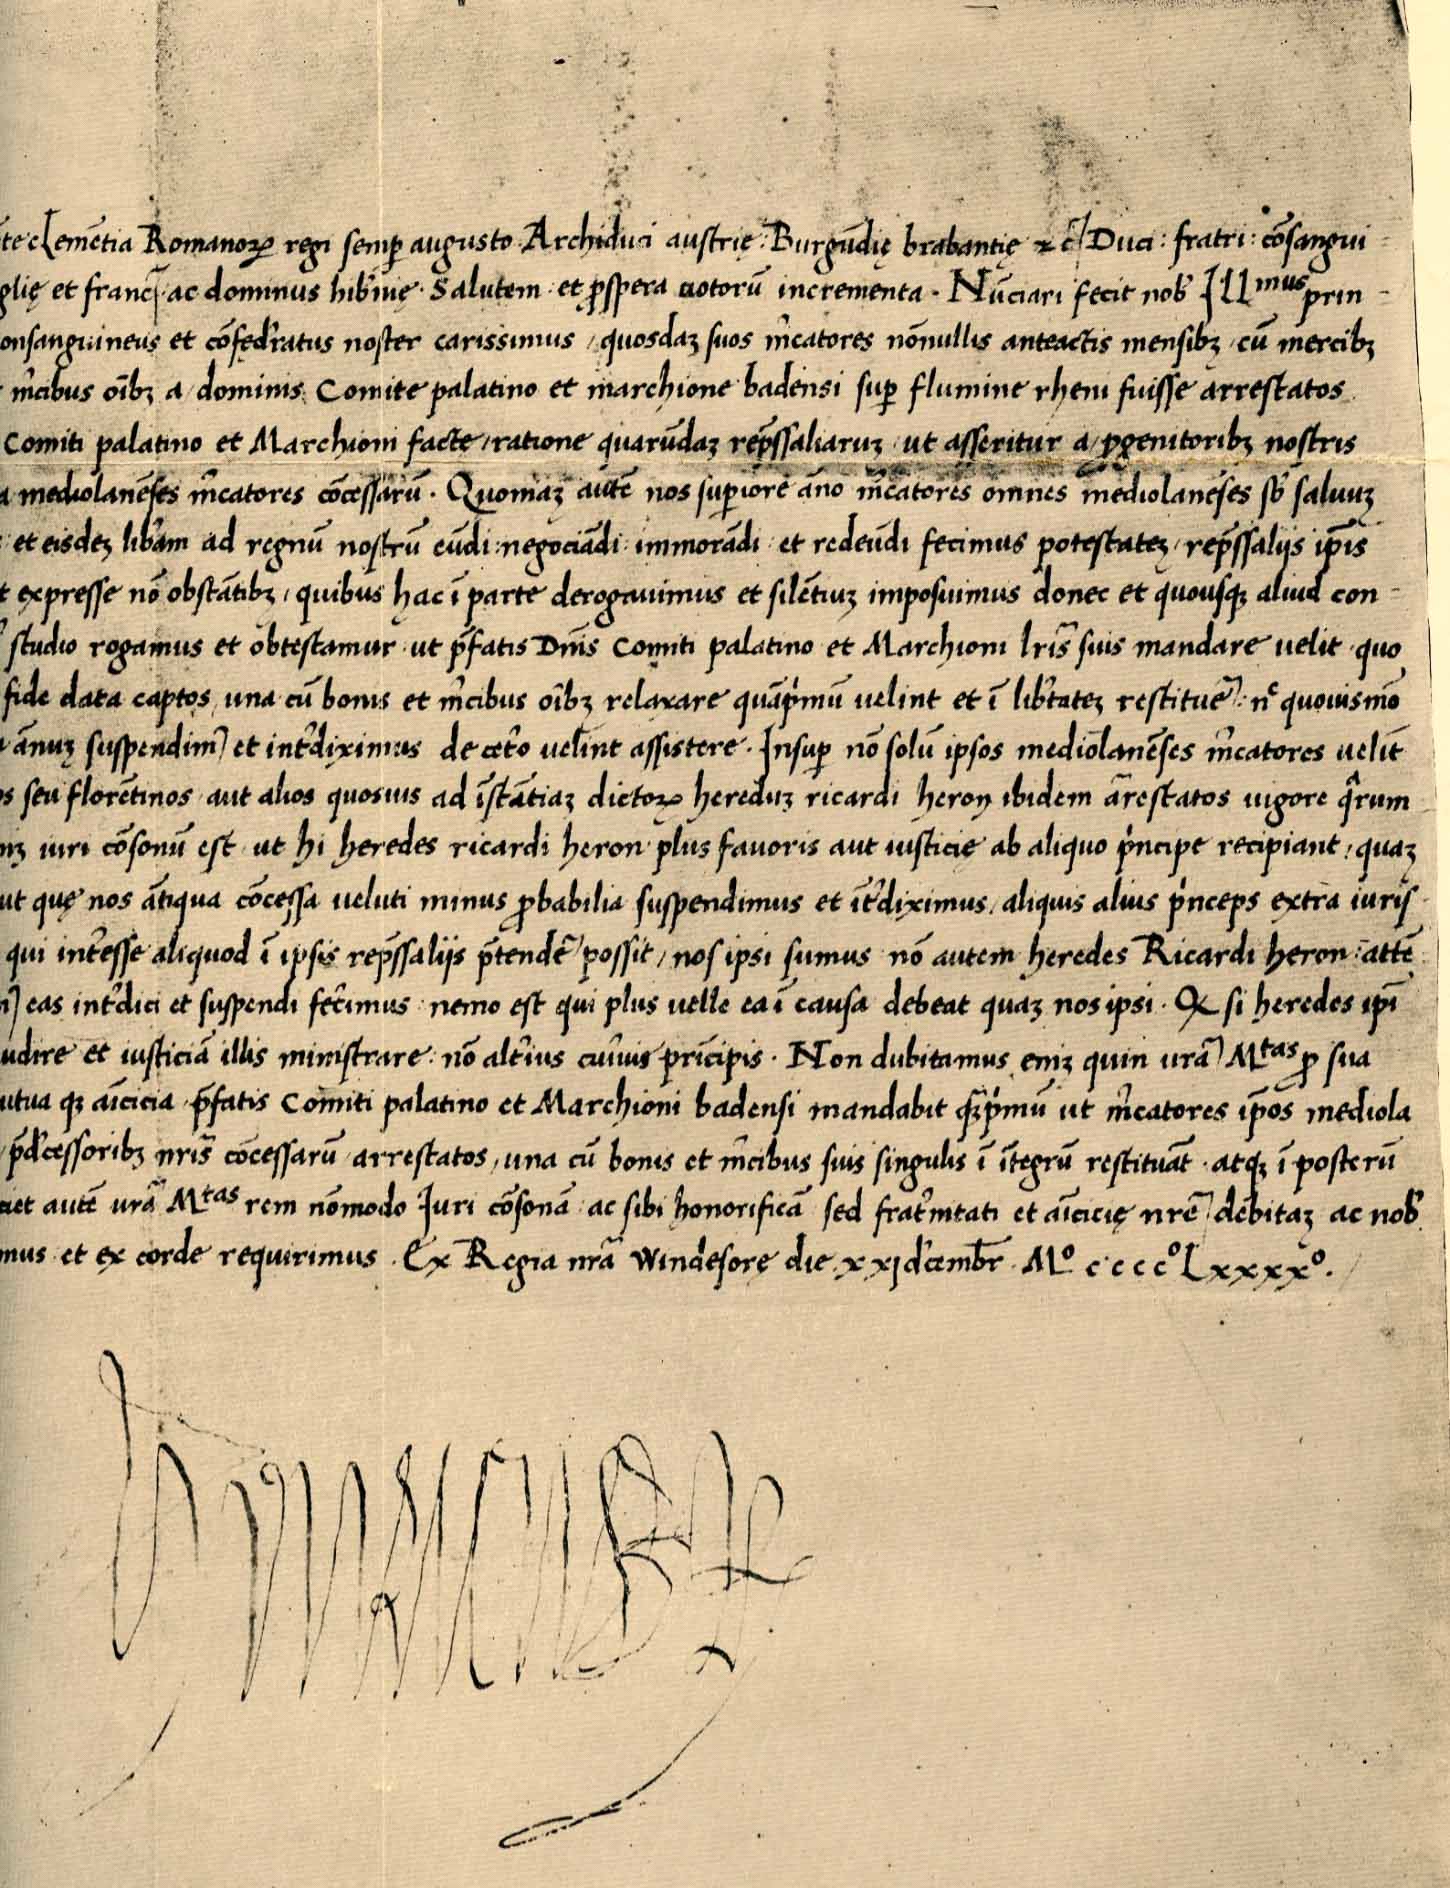 te clemētia Romanoꝝ regi semꝑ augusto Archiduci austrię : Burgūdię brabantię ⁊ c̄ Duci : fratri : cōsangui-
glię et franc̄ · ac dominus hib'nię · Salutem · et ꝓspera uotorū incrementa · Nūciari fecit nob' Illmus prin-
onsanguineus et cōfed'ratus noster carissimus / quosdaʒ suos m'catores nōnullis anteactis mensibʒ / cū mercibʒ
m'cibus oībʒ a dominis Comite palatino et marchione badensi suꝑ flumine rheni fuisse arrestatos
Comiti palatino et Marchioni facte / ratione quarūdaʒ rep̄ssaliaruʒ / ut asseritur a ꝓgenitoribʒ nostris
a mediolanēses m'catores cōcessarū · Quoniaʒ autē nos suꝑiore āno m'catores omnes mediolanēses sb' saluuʒ
et eisdeʒ lib'am ad regnū nostrū eūdi : negociādi : immorādi : et redeūdi fecimus potestateʒ / rep̄ssalijs ip̄is
t expresse nō obstātibʒ / quibus hac ī parte derogauimus et silētiuʒ imposuimus donec et quousqʒ aliud con-
studio rogamus et obtestamur · ut p̄fatis Dn̄is Comiti palatino et Marchioni lr̄is suis mandare uelit · quo
fide data captos, una cū bonis et m'cibus oībʒ relaxare quāp'mū uelint et ī lib'tateʒ restituē : nc̄ quouismō
ānuʒ suspendim) et int'diximus de cet'o uelint assistere · Insuꝑ nō solū ipsos mediolanēses m'catores uelit
os seu florētinos · aut alios quosuis ad īstātiaʒ dictoꝝ hereduʒ ricardi heron ibidem ārestatos uigore q̄rum
iʒ iuri cōsonū est · ut hi heredes ricardi heron plus fauoris aut iusticię ab aliquo p'ncipe recipiant : quaʒ
ut quę nos ātiqua cōcessa ueluti minus ꝓbabilia suspendimus et īt'diximus / aliquis alius p'nceps extra iuris
qui int'esse aliquod ī ipsis rep̄ssalijs p̄tendē possit / nos ipsi sumus nō autem heredes Ricardi heron : attē
) eas int'dici et suspendi fec'imus · nemo est qui plus uelle ea ī causa debeat quaʒ nos ipsi · Qꝫ si heredes ip̄i
udire et iusticiā illis ministrare : nō alt'ius cuiuis prīcipis · Non dubitamus eniʒ quin urā Mtas ꝓ sua
utua qʒ aīcicia p̄fatis Comiti palatino et Marchioni badensi mandabit qʒp'mū ut m'catores ip̄os mediola
p̄d'cessoribʒ nr̄is cōcessarū arrestatos, una cū bonis et m'cibus suis singulis ī ītegrū restituāt · atqʒ ī posterū
iet autē urā Mtas rem nōmodo Iuri cōsonā · ac sibi honorificā sed frat'nitati et aīcicię nrē debitaʒ ac nob'
mus · et ex corde requirimus · Ex Regia nrā Windesorę die xxj d'cēmbr · Mo cccco Lxxxxo.